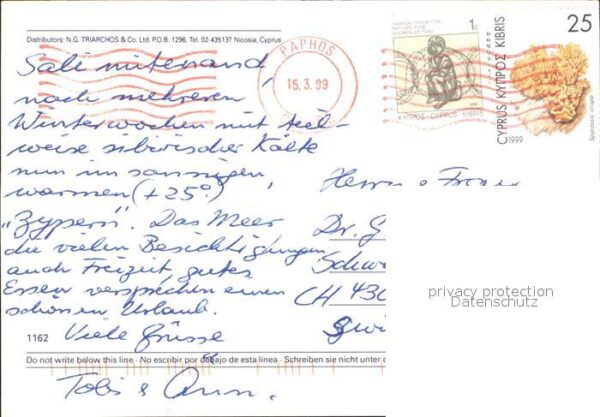 Distributors: N.G. TRIARCHOS & Co. Ltd. P.O.B. 1296. Tel. 02-435137 Nicosia, Cyprus
Sali mitenand,
nach mehreren
Winterwochen mit teil-
weise sibirischer Kälte
nun im sonnigen,
warmen (+25°)
"Zypern". Das Meer
die vielen Besichtigungen
auch Freizeit, gutes
Essen versprechen einen
schönen Urlaub.
1162 Viele Grüsse
Do not write below this line · No escribir por debajo de esta línea · Schreiben sie nicht unter d
Tobis &
PAPHOS
15.3.99
1c
ΚΥΠΡΟΣ·CYPRUS·KIBRIS
25
CYPRUS ΚΥΠΡΟΣ KIBRIS
©1999
Herrn + Frau
Dr. G
Schw
CH 430
privacy protection
Datenschutz